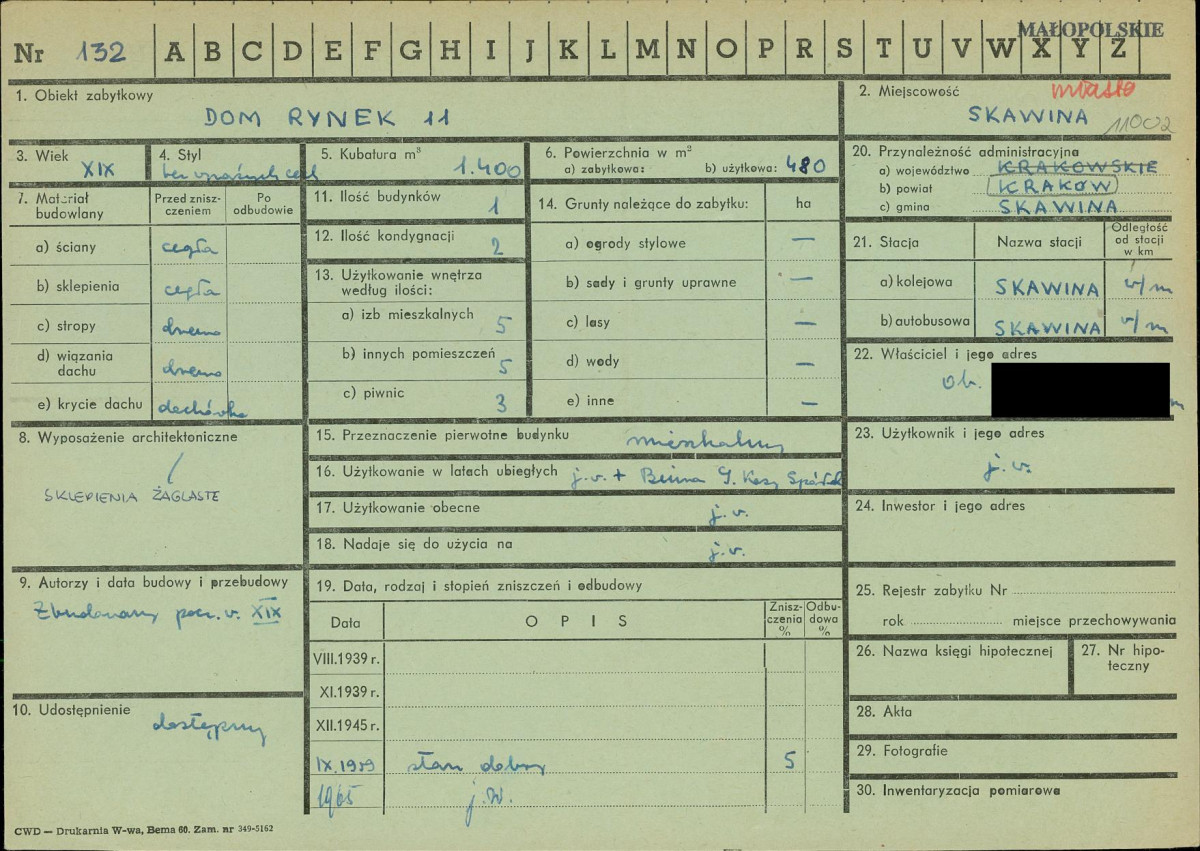 MAŁOPOLSKIE
Nr 132 A B C D E F G H I J K L M N O P R S T U V W X Y Z
1. Obiekt zabytkowy
DOM RYNEK 11
2. Miejscowość miasto
SKAWINA
11002
3. Wiek
XIX
4. Styl
bez wyraźnych cech
5. Kubatura m³
1.400
6. Powierzchnia w m²
a) zabytkowa: b) użytkowa: 480
20. Przynależność administracyjna
a) województwo KRAKOWSKIE
b) powiat KRAKÓW
c) gmina SKAWINA
7. Materiał budowlany
Przed zniszczeniem
Po odbudowie
a) ściany cegła
b) sklepienia cegła
c) stropy drewno
d) wiązania dachu drewno
e) krycie dachu dachówka
11. Ilość budynków 1
12. Ilość kondygnacji 2
13. Użytkowanie wnętrza według ilości:
a) izb mieszkalnych 5
b) innych pomieszczeń 5
c) piwnic 3
14. Grunty należące do zabytku: ha
a) ogrody stylowe —
b) sady i grunty uprawne —
c) lasy —
d) wody —
e) inne —
21. Stacja Nazwa stacji Odległość od stacji w km
a) kolejowa SKAWINA w/m
b) autobusowa SKAWINA w/m
22. Właściciel i jego adres
ob.
8. Wyposażenie architektoniczne
SKLEPIENIA ŻAGLASTE
15. Przeznaczenie pierwotne budynku mieszkalny
16. Użytkowanie w latach ubiegłych j.w. +
17. Użytkowanie obecne j.w.
18. Nadaje się do użycia na j.w.
23. Użytkownik i jego adres
j.w.
24. Inwestor i jego adres
9. Autorzy i data budowy i przebudowy
Zbudowany pocz. w. XIX
10. Udostępnienie
dostępny
19. Data, rodzaj i stopień zniszczeń i odbudowy
Data OPIS Zniszczenia % Odbudowa %
VIII.1939 r.
XI.1939 r.
XII.1945 r.
IX.1959 stan dobry 5
1965 j.w.
25. Rejestr zabytku Nr
rok miejsce przechowywania
26. Nazwa księgi hipotecznej
27. Nr hipoteczny
28. Akta
29. Fotografie
30. Inwentaryzacja pomiarowa
CWD — Drukarnia W-wa, Bema 60. Zam. nr 349-5162